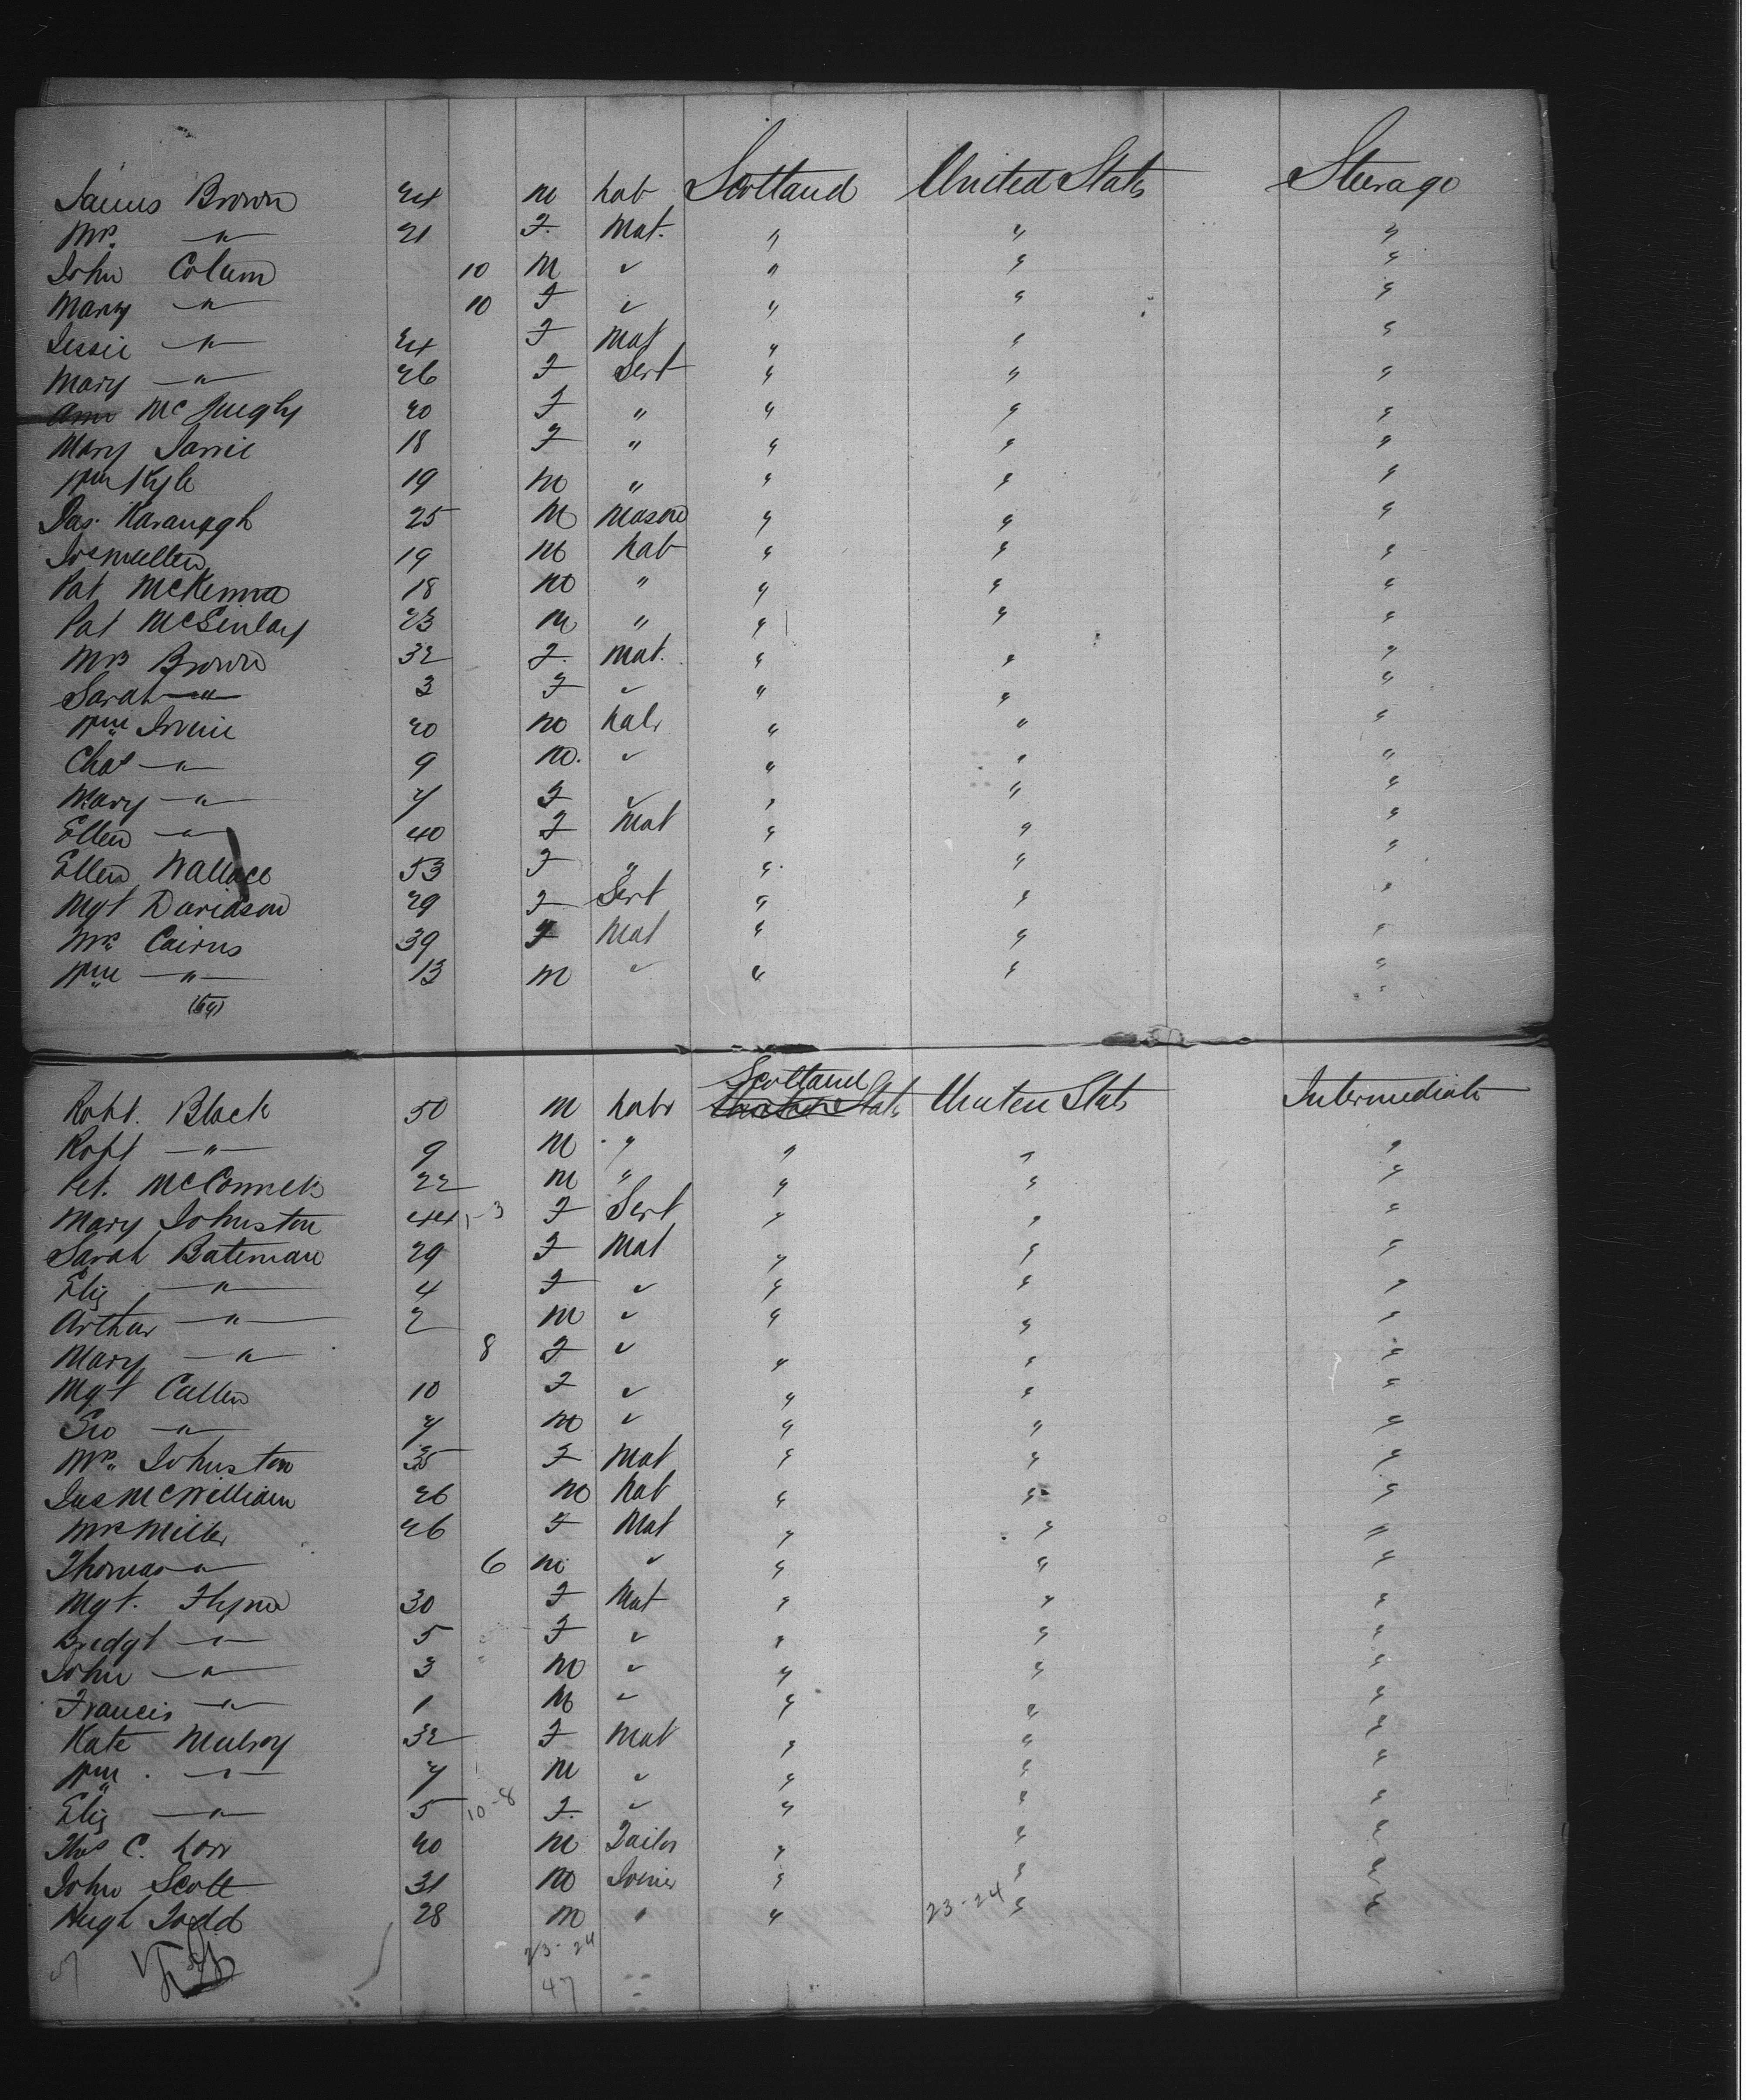 James Brown 24 M Lab Scotland United States Steerage
Mrs. " 21 F. Mat. " " "
John Colum 10 M " " " "
Mary " 10 F " " " "
Jessie " 24 F Mat " " "
Mary " 26 F Sert " " "
Ann Mc 20 F " " " "
Mary Jarvie 18 F " " " "
Wm Kyle 19 M " " " "
Jas. Kavanagh 25 M Mason " " "
Jos Mullen 19 M Lab " " "
Pat McKenna 18 M " " " "
Pat McGinlay 23 M " " " "
Mrs Brown 32 F. Mat. " " "
Sarah " 3 F " " " "
Wm Irvine 20 M Labr " " "
Chas " 9 M. " " " "
Mary " 7 F " " " "
Ellen " 40 F Mat " " "
Ellen Wallace 53 F " " " "
Mgt Davidson 29 F Sert " " "
Mrs Cairns 39 F Mat " " "
Wm " 13 M " " " "
Robt. Black 50 M Labr Scotland United Stats Intermediate
Robt " 9 M " " " "
Pet. McConnell 22 M " " " "
Mary Johnston 44 1-3 F Sert " " "
Sarah Bateman 29 F Mat " " "
Eliz " 4 F " " " "
Arthur " 2 M " " " "
Mary " 8 F " " " "
Mgt Cullen 10 F " " " "
Geo " 7 M " " " "
Mrs. Johnston 35 F Mat " " "
Jas McWilliam 26 M Lab " " "
Mrs Miller 26 F Mat " " "
Thomas " 6 M " " " "
Mgt. Flynn 30 F Mat " " "
Bridgt " 5 F " " " "
John " 3 M " " " "
Francis " 1 M " " " "
Kate Mulroy 32 F Mat " " "
Wm. " 7 M " " " "
Eliz " 5 10-8 F. " " " "
Thos C. Lorr 20 M Tailor " " "
John Scott 31 M Joiner " " "
Hugh Todd 28 M " " 23-24 " "
23-24
47